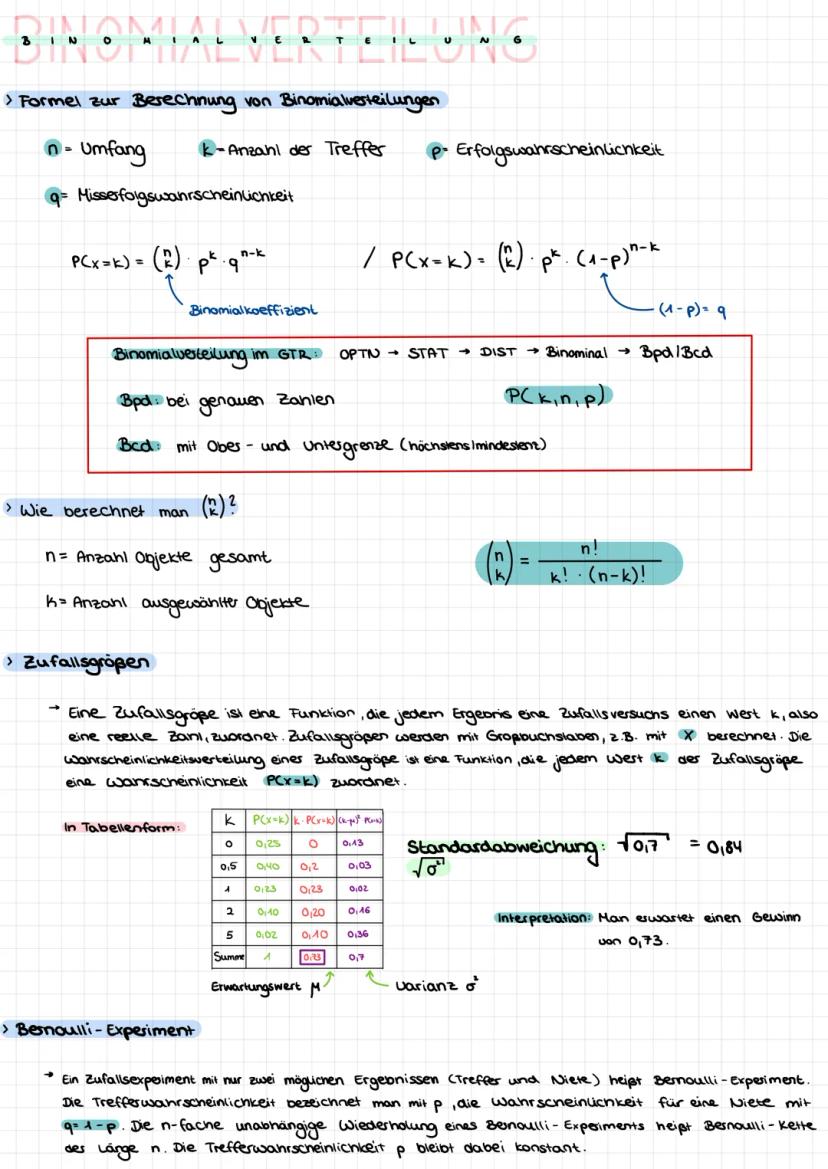 BINOMIALVERTEILUNG
BINOMIALVERTEILUNG
> Formel zur Berechnung von Binomialverteilungen
n = Umfang k - Anzahl der Treffer p = Erfolgswahrscheinlichkeit
q = Misserfolgswahrscheinlichkeit
P(x=k) = (n k) · p^k · q^n-k / P(x=k) = (n k) · p^k · (1-p)^n-k
Binomialkoeffizient (1-p) = q
Binomialverteilung im GTR: OPTN → STAT → DIST → Binominal → Bpd/Bcd
Bpd: bei genauen Zahlen P(k,n,p)
Bcd: mit Ober- und Untergrenze (höchstens/mindestent)
> Wie berechnet man (n k)?
n = Anzahl Objekte gesamt
(n k) = n! / k! · (n-k)!
k = Anzahl ausgewählter Objekte
> Zufallsgrößen
→ Eine Zufallsgröße ist eine Funktion, die jedem Ergebnis eine Zufallsversuchs einen Wert k, also
eine reelle Zahl, zuordnet. Zufallsgrößen werden mit Großbuchstaben, z.B. mit X berechnet. Die
Wahrscheinlichkeitsverteilung einer Zufallsgröße ist eine Funktion, die jedem Wert k der Zufallsgröße
eine Wahrscheinlichkeit P(x=k) zuordnet.
In Tabellenform:
k P(x=k) k·P(x=k) (k-μ)²·P(x=k)
0 0,25 0 0,13
0,5 0,40 0,2 0,03
1 0,23 0,23 0,02
2 0,10 0,20 0,16
5 0,02 0,10 0,36
Summe 1 0,73 0,7
Erwartungswert μ Varianz σ²
Standardabweichung: √0,7 = 0,84
√σ²
Interpretation: Man erwartet einen Gewinn
von 0,73.
> Bernoulli-Experiment
→ Ein Zufallsexperiment mit nur zwei möglichen Ergebnissen (Treffer und Niete) heißt Bernoulli-Experiment.
Die Trefferwahrscheinlichkeit bezeichnet man mit p, die Wahrscheinlichkeit für eine Niete mit
q=1-p. Die n-fache unabhängige Wiederholung eines Bernoulli-Experiments heißt Bernoulli-Kette
der Länge n. Die Trefferwahrscheinlichkeit p bleibt dabei konstant.